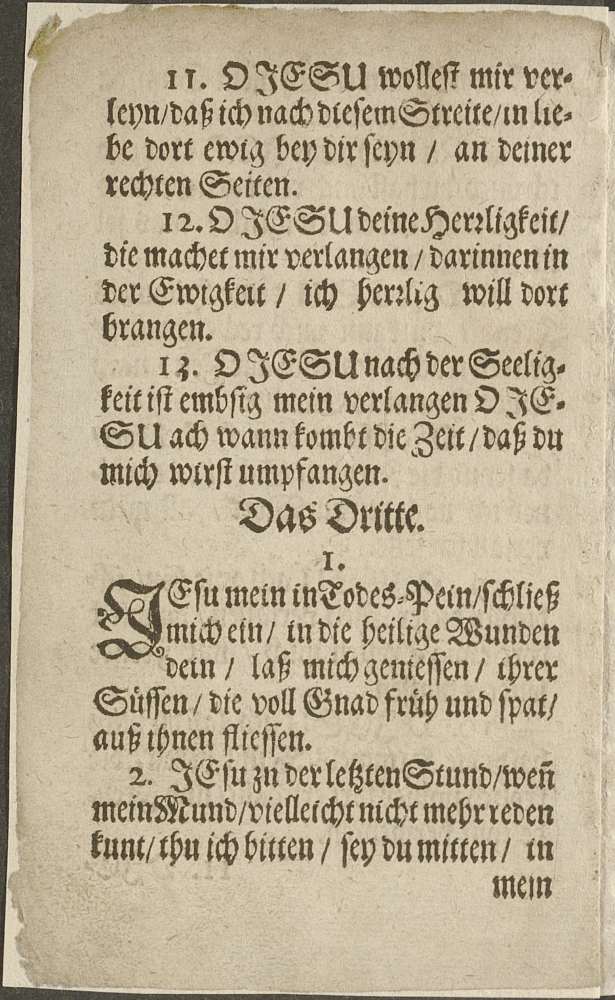 11. O JESU wollest mir ver-
leyn/daß ich nach diesem Streite/in lie-
be dort ewig bey dir seyn / an deiner
rechten Seiten.
12. O JESU deine Herrligkeit/
die machet mir verlangen / darinnen in
der Ewigkeit / ich herrlig will dort
brangen.
13. O JESU nach der Seelig-
keit ist embsig mein verlangen O JE-
SU ach wann kombt die Zeit / daß du
mich wirst umpfangen.
Das Dritte.
1.
JEsu mein in Todes-Pein/schließ
mich ein / in die heilige Wunden
dein / laß mich geniessen / ihrer
Süssen / die voll Gnad früh und spat/
auß ihnen fliessen.
2. JEsu zu der letzten Stund/weñ
mein Mund/vielleicht nicht mehr reden
kunt/thu ich bitten / sey du mitten / in
mein